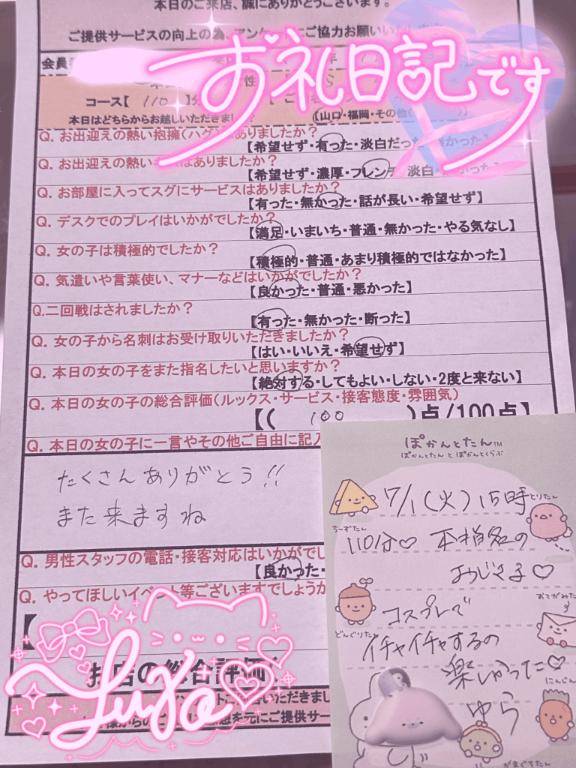 本日のご来店、誠にありがとうございます。
ご提供サービスの向上の為、アンケートにご協力お願い
お礼日記です
会員
コース【 110
本日はどちらからお越しいただきました 【山口・福岡・その他
Q. お出迎えの熱い抱擁(ハグ)はありましたか?
【希望せず・有った・淡白だった・無かった】
Q. お出迎えの熱い
はありましたか?
【希望せず・濃厚・フレンチ・淡白・無かった】
Q. お部屋に入ってスグにサービスはありましたか?
【有った・無かった・話が長い・希望せず】
Q. デスクでのプレイはいかがでしたか?
【満足・いまいち・普通・無かった・やる気なし】
Q. 女の子は積極的でしたか?
【積極的・普通・あまり積極的ではなかった】
Q. 気遣いや言葉使い、マナーなどはいかがでしたか?
【良かった・普通・悪かった】
Q.二回戦はされましたか?
【有った・無かった・断った】
Q. 女の子から名刺はお受け取りいただきましたか?
【はい・いいえ・希望せず】
Q. 本日の女の子をまた指名したいと思いますか?
【絶対する・してもよい・しない・2度と来ない】
Q. 本日の女の子の総合評価(ルックス・サービス・接客態度・雰囲気)
【( 100 )点/100点】
Q. 本日の女の子に一言やその他ご自由に記入
たくさんありがとう!!
また来ますね
Q. 男性スタッフの電話・接客対応はいかがでし
【良かった・
Q. やってほしいイベント等ございますでしょうか
【
お店の総合評価
Yura
ぽかんとたん™
ぽかんとたん と ぽかんとくらぶ
7/1(火)15時
とりたん
ちーずたん
110分♡ 本指名の
おうじさま♡
おてがみたん
コスプレで
どんぐりたん
イチャイチャするの
楽しかった♡
にんじん
ゆら
がまぐちたん